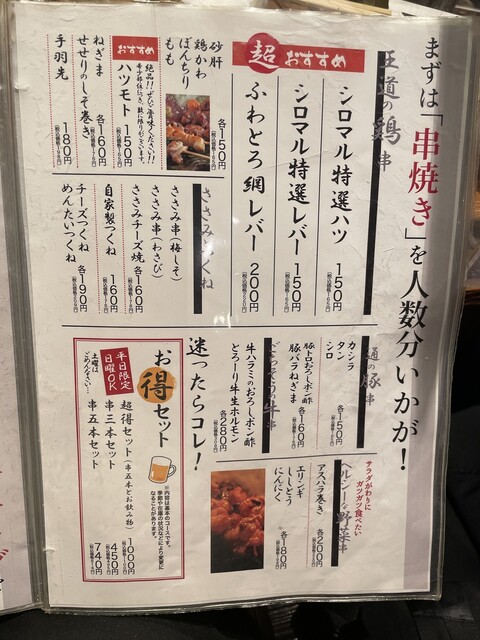 まずは「串焼き」を人数分いかが!
王道の鶏串
超おすすめ
シロマル特選ハツ 150円
シロマル特選レバー 150円
ふわとろ網レバー 200円
砂肝
鶏かわ
ぼんちり
もも
各150円
おすすめ
ハツモト 150円
ねぎま
せせりのしそ巻き
各160円
手羽先 180円
ささみ串(梅しそ)
ささみ串(わさび)
ささみチーズ焼
各160円
自家製つくね 160円
チーズつくね
めんたいつくね
各190円
道の豚串
カシラ
タン
シロ
各150円
豚トロおろしポン酢
豚バラねぎま
各160円
牛ハラミのおろしポン酢
とろーり牛生ホルモン
各280円
サラダがわりに
ガツガツ食べたい
ヘルシーな野菜串
アスパラ巻き 各200円
エリンギ
ししとう
にんにく
各180円
迷ったらコレ!
お得セット
平日限定
日曜OK
土曜は
ごめんなさい…
超得セット(串五本とお飲み物) 1000円
串三本セット 450円
串五本セット 740円
※内容は基本のコースです。
季節や在庫の状況などにより変更に
なることがあります。